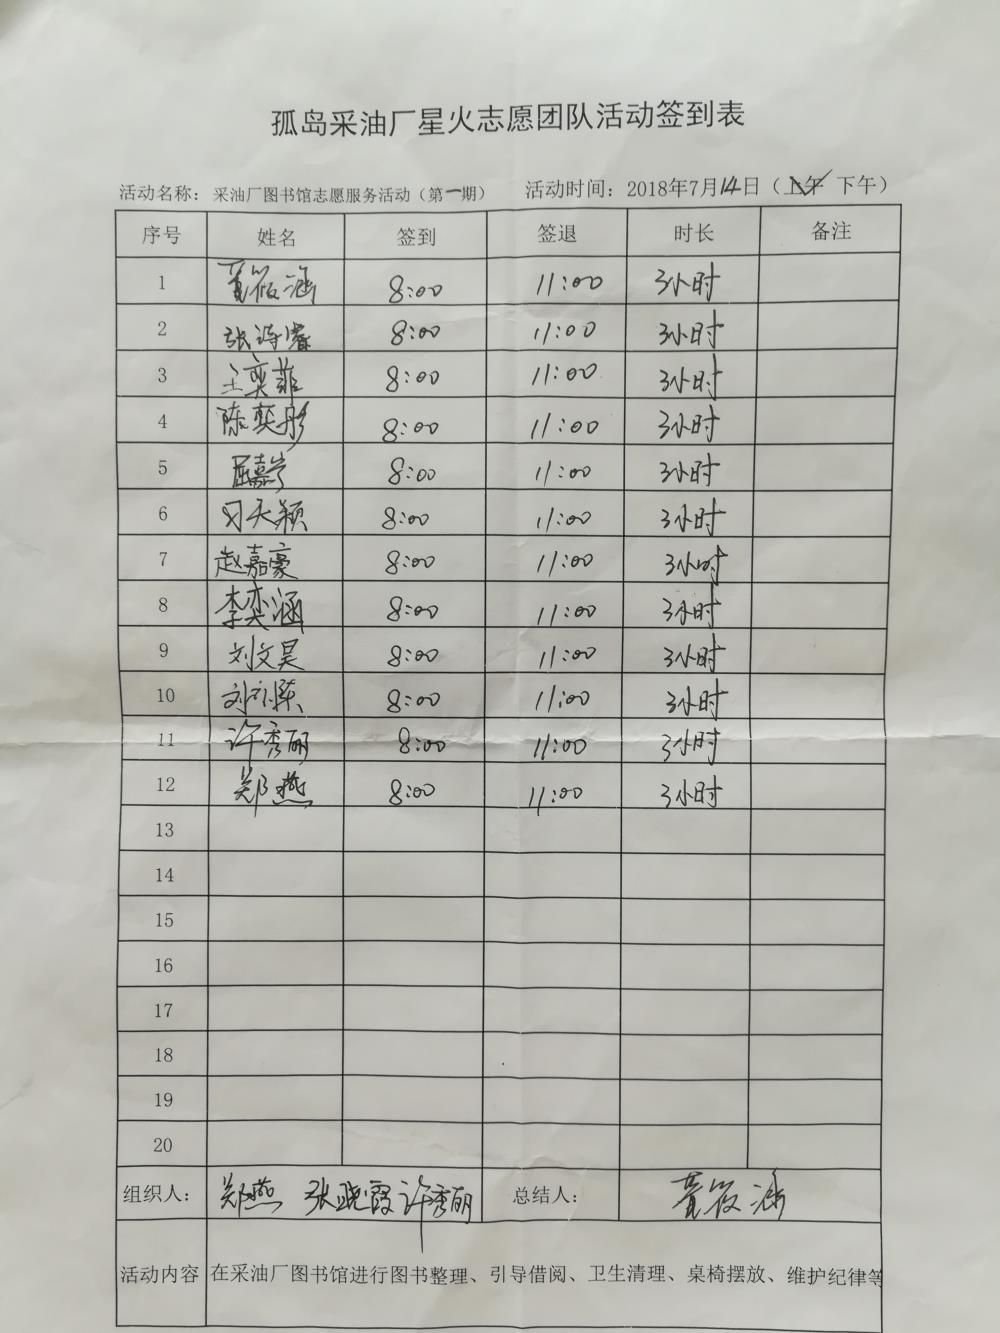 孤岛采油厂星火志愿团队活动签到表
活动名称：采油厂图书馆志愿服务活动（第一期） 活动时间：2018年7月14日（上午 下午）
序号 姓名 签到 签退 时长 备注
1 筱涵 8:00 11:00 3小时
2 张诗睿 8:00 11:00 3小时
3 王奕菲 8:00 11:00 3小时
4 陈奕彤 8:00 11:00 3小时
5 屈嘉 8:00 11:00 3小时
6 天颖 8:00 11:00 3小时
7 赵嘉豪 8:00 11:00 3小时
8 李奕涵 8:00 11:00 3小时
9 刘文昊 8:00 11:00 3小时
10 刘 8:00 11:00 3小时
11 许秀丽 8:00 11:00 3小时
12 郑燕 8:00 11:00 3小时
13
14
15
16
17
18
19
20
组织人： 郑燕 张晓霞 许秀丽 总结人： 筱涵
活动内容 在采油厂图书馆进行图书整理、引导借阅、卫生清理、桌椅摆放、维护纪律等